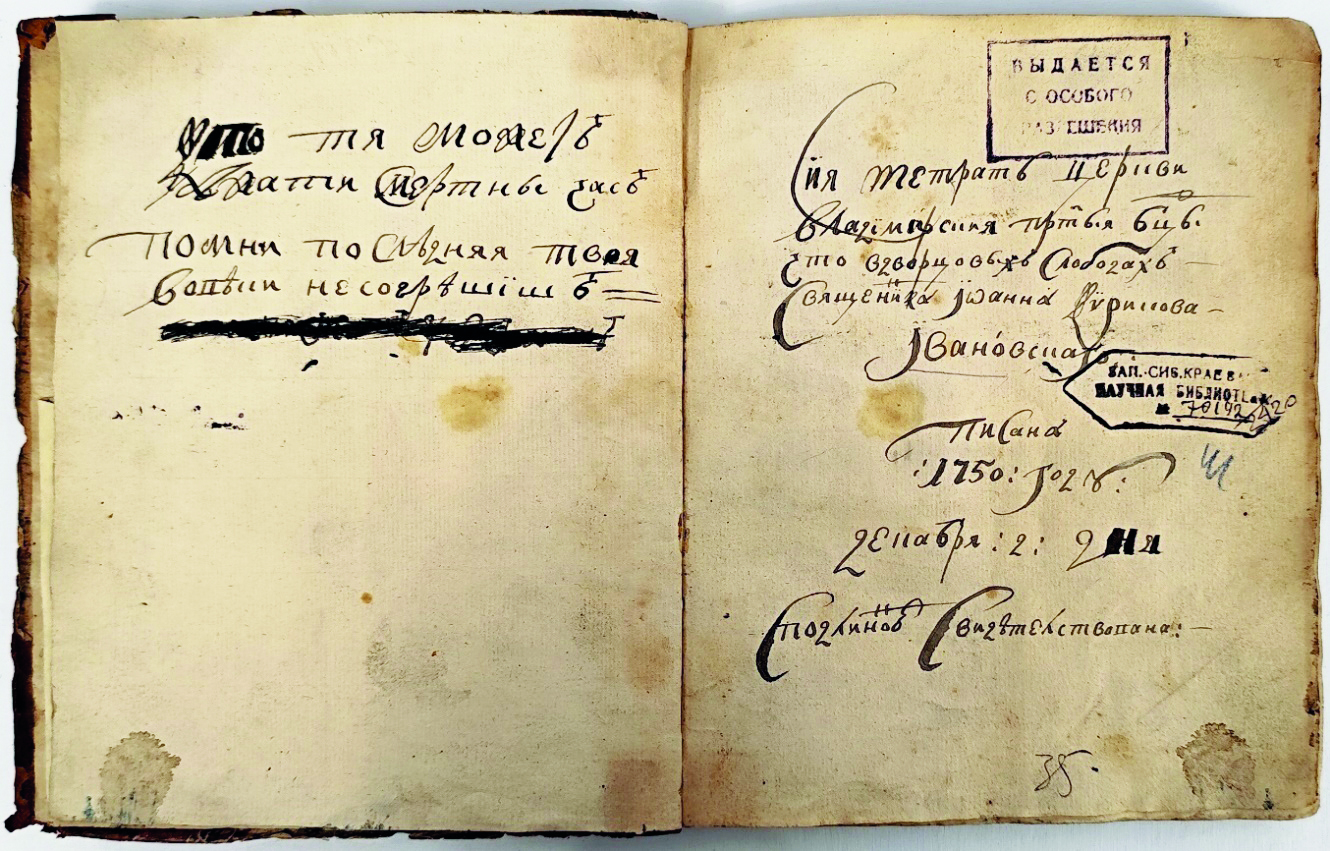 что тя можетъ
смертны часъ
помни последняя твоя
вовеки несогрѣшїшъ
ВЫДАЕТСЯ
С ОСОБОГО
РАЗРЕШЕНИЯ
Сїя тетрать церкви
владимирския прⷭ҇тыя бцы
что вдворцовыхъ слободахъ
священника Іоанна Кирилова
Івановскаго
ЗАП.-СИБ.КРАЕВ
НАУЧНАЯ БИБЛИОТЕКА
№ 70192
писана
:1750: году:
декабря :2: дня
Сподлинной Свидѣтелствована:
35.